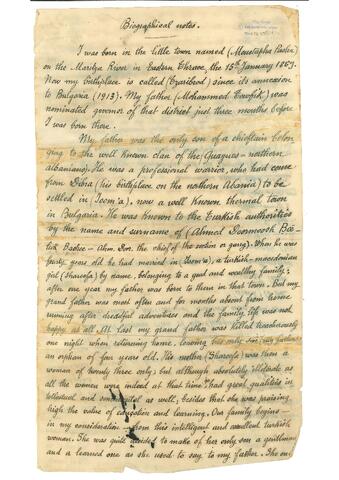 Biographical notes.
I was born in the little town named (Moustapha Pasha)
on the Maritza River in Eastern Thrace, the 15th January 1869.
Now my birthplace is called (Tzaribrod) since its annexion
to Bulgaria (1913). My father (Mohammed Tewfik) was
nominated governor of that district just three months before
I was born there.
My father was the only son of a chieftain belon
ging to the well known clan of the (Guegues - northern
albanians). He was a professional warrior, who had come
from Dibra (his birthplace on the northern Albania) to be
settled in (Joom'a), now a well known thermal town
in Bulgaria. He was known to the Turkish authorities
by the name and surname of (Ahmed Doormoosh
Ahm. Dor. the chief of the or gang). When he was
forty years old he had married in (Joom'a), a turkish-macedonian
girl (Shareefa) by name, belonging to a good and wealthy family;
after one year my father was born to them in that town. But my
grand father was most often and for months absent from home
running after deceitful adventures and the family life was not
happy at all. At last my grand father was killed treacherously
one night when returning home, leaving his only son (my father)
an orphan of four years old. His mother (Shareefa) was then a
woman of twenty three only; but although absolutely illiterate as
all the women were indeed at that time, had great qualities in
tellectual and as well, besides that she was praising
high the value of education and learning. Our family begins
in my consideration from this intelligent and excellent turkish
woman. She was quite decided to make of her only son a gentleman
and a learned one as she used to say to my father. She